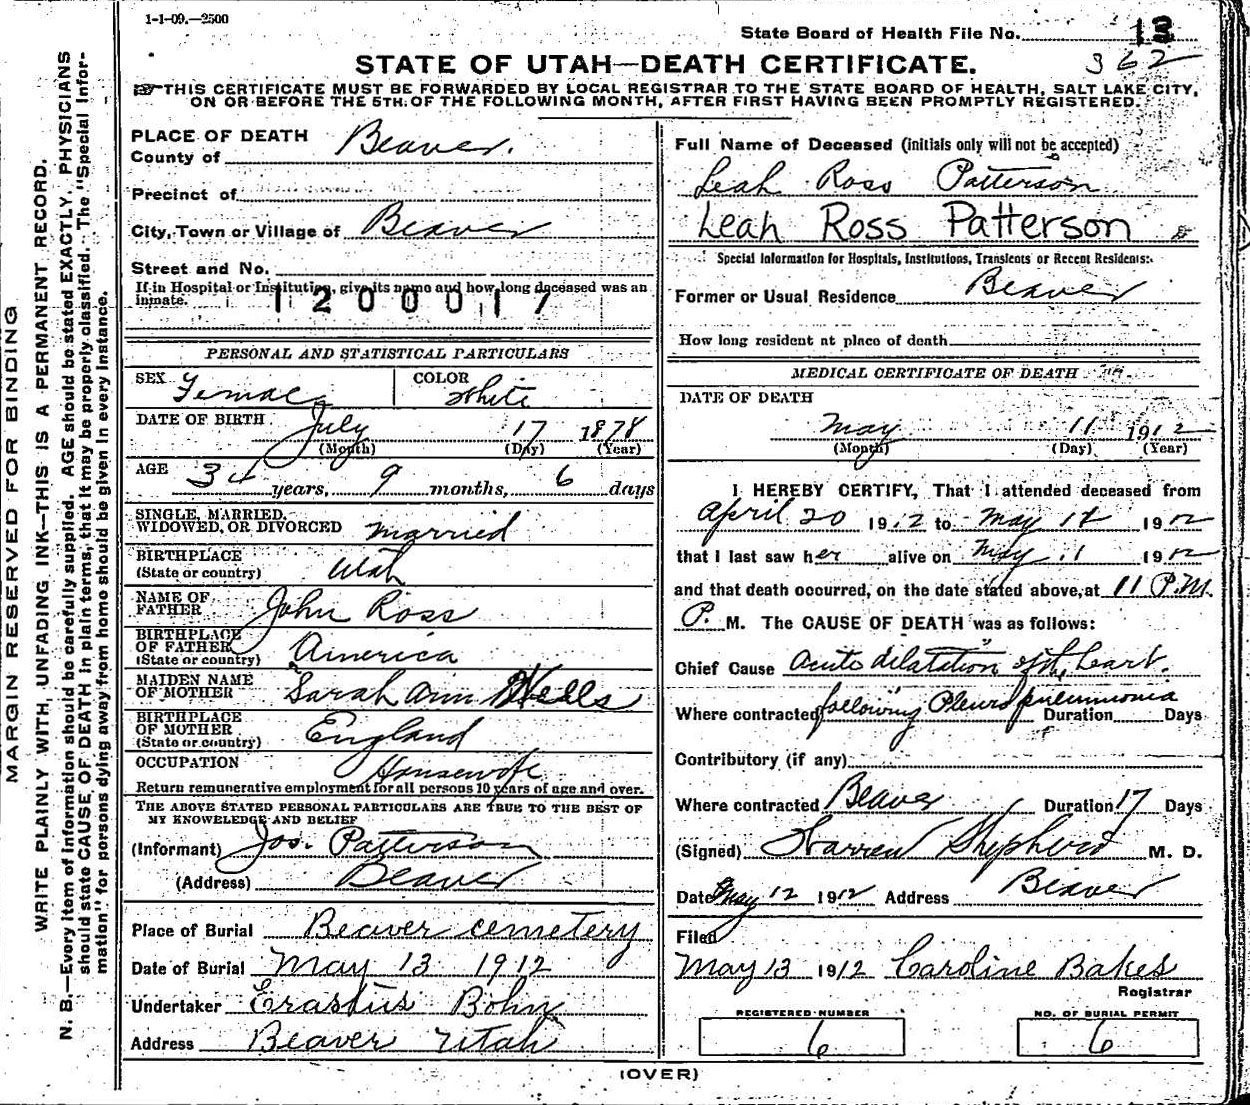 1-1-09.—2500
State Board of Health File No. 13
362
STATE OF UTAH—DEATH CERTIFICATE.
THIS CERTIFICATE MUST BE FORWARDED BY LOCAL REGISTRAR TO THE STATE BOARD OF HEALTH, SALT LAKE CITY,
ON OR BEFORE THE 5TH OF THE FOLLOWING MONTH, AFTER FIRST HAVING BEEN PROMPTLY REGISTERED.
MARGIN RESERVED FOR BINDING
WRITE PLAINLY WITH UNFADING INK—THIS IS A PERMANENT RECORD.
N. B.—Every item of information should be carefully supplied. AGE should be stated EXACTLY. PHYSICIANS
should state CAUSE OF DEATH in plain terms, that it may be properly classified. The "Special Infor-
mation" for persons dying away from home should be given in every instance.
PLACE OF DEATH
County of Beaver.
Precinct of
City, Town or Village of Beaver
Street and No.
If in Hospital or Institution, give its name and how long deceased was an
inmate.
1200017
PERSONAL AND STATISTICAL PARTICULARS
SEX Female COLOR White
DATE OF BIRTH July 17 1878
(Month) (Day) (Year)
AGE
34 years, 9 months, 6 days
SINGLE, MARRIED,
WIDOWED, OR DIVORCED married
BIRTHPLACE
(State or country) Utah
NAME OF
FATHER John Ross
BIRTHPLACE
OF FATHER
(State or country) America
MAIDEN NAME
OF MOTHER Sarah Ann Wells
BIRTHPLACE
OF MOTHER
(State or country) England
OCCUPATION Housewife
Return remunerative employment for all persons 10 years of age and over.
THE ABOVE STATED PERSONAL PARTICULARS ARE TRUE TO THE BEST OF
MY KNOWLEDGE AND BELIEF
(Informant) Jos. Patterson
(Address) Beaver
Place of Burial Beaver cemetery
Date of Burial May 13 1912
Undertaker Erastus Bohn
Address Beaver Utah
Full Name of Deceased (initials only will not be accepted)
Leah Ross Patterson
Leah Ross Patterson
Special Information for Hospitals, Institutions, Transients or Recent Residents:
Former or Usual Residence Beaver
How long resident at place of death
MEDICAL CERTIFICATE OF DEATH
DATE OF DEATH
May 11 1912
(Month) (Day) (Year)
I HEREBY CERTIFY, That I attended deceased from
April 20 1912 to May 1912
that I last saw her alive on May 11 1912
and that death occurred, on the date stated above, at 11 P.M.
P. M. The CAUSE OF DEATH was as follows:
Chief Cause Acute dilatation of the heart.
Where contracted following Pleuro pneumonia Duration Days
Contributory (if any)
Where contracted Beaver Duration 17 Days
(Signed) Warren Shepherd M. D.
Date May 12 1912 Address Beaver
Filed
May 13 1912 Caroline Bakes
Registrar
REGISTERED NUMBER
6
NO. OF BURIAL PERMIT
6
(OVER)